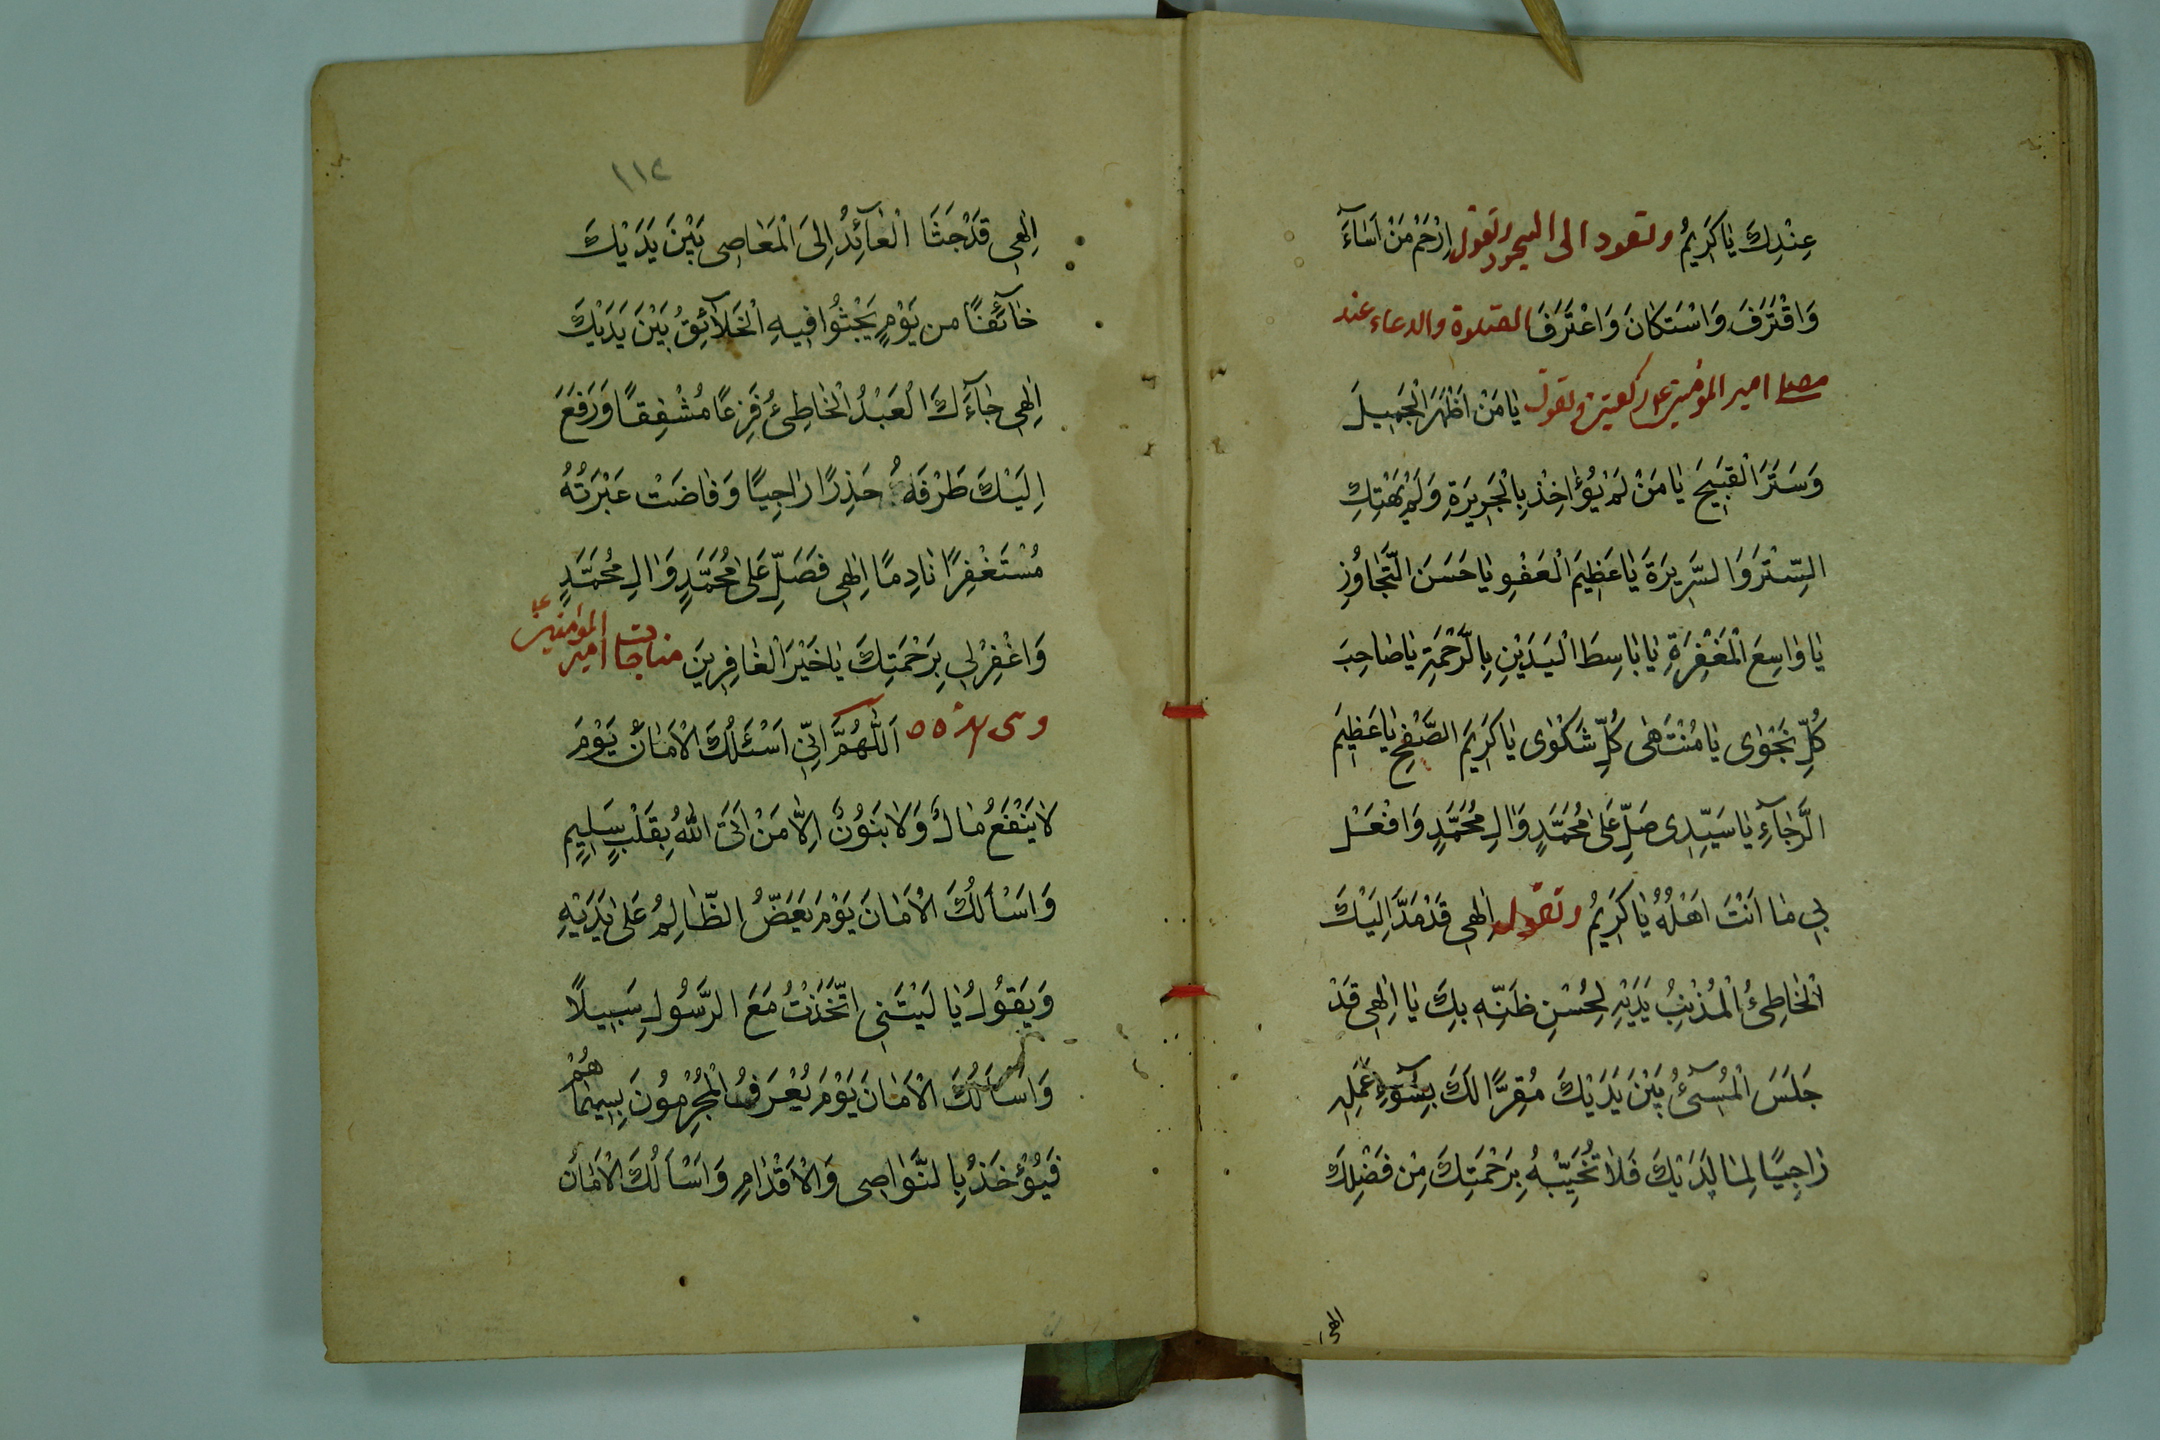 عِنْدِكَ يٰا كَرِيمُ وتعود الى السجود وتقول اِرْحَمْ مَنْ اَسٰاءَ
وَاقْتَرَفَ وَاسْتَكٰانَ وَاعْتَرَفَ الصلوة والدعاء عند
مصلا امير المؤمنين ركعتين وتقول يٰا مَنْ اَظْهَرَ الْجَمِيلَ
وَسَتَرَ الْقَبِيحَ يٰا مَنْ لَمْ يُؤٰاخِذْ بِالْجَرِيرَةِ وَلَمْ يَهْتِكِ
السِّتْرَ وَالسَّرِيرَةَ يٰا عَظِيمَ الْعَفْوِ يٰا حَسَنَ التَّجٰاوُزِ
يٰا وٰاسِعَ الْمَغْفِرَةِ يٰا بٰاسِطَ الْيَدَيْنِ بِالرَّحْمَةِ يٰا صٰاحِبَ
كُلِّ نَجْوٰى يٰا مُنْتَهٰى كُلِّ شَكْوٰى يٰا كَرِيمَ الصَّفْحِ يٰا عَظِيمَ
الرَّجٰاءِ يٰا سَيِّدِى صَلِّ عَلٰى مُحَمَّدٍ وَاٰلِ مُحَمَّدٍ وَافْعَلْ
بِي مٰا اَنْتَ اَهْلُهُ يٰا كَرِيمُ وتقول اِلٰهِى قَدْ مَدَّ اِلَيْكَ
الْخٰاطِئُ الْمُذْنِبُ يَدَيْهِ لِحُسْنِ ظَنِّهِ بِكَ يٰا اِلٰهِى قَدْ
جَلَسَ الْمُسِىءُ بَيْنَ يَدَيْكَ مُقِرًّا لَكَ بِسُوءِ عَمَلِهِ
رٰاجِيًا لِمٰا لَدَيْكَ فَلٰا تُخَيِّبْهُ بِرَحْمَتِكَ مِنْ فَضْلِكَ
الهى
١١٢
اِلٰهِى قَدْ جَثَا الْعٰائِدُ اِلَى الْمَعٰاصِى بَيْنَ يَدَيْكَ
خٰائِفًا من يَوْمٍ يَجْثُوا فِيهِ الْخَلٰائِقُ بَيْنَ يَدَيْكَ
اِلٰهِى جٰاءَكَ الْعَبْدُ الْخٰاطِئُ فَزِعًا مُشْفِقًا وَرَفَعَ
اِلَيْكَ طَرْفَهُ حَذِرًا رٰاجِيًا وَفٰاضَتْ عَبْرَتُهُ
مُسْتَغْفِرًا نٰادِمًا اِلٰهِى فَصَلِّ عَلٰى مُحَمَّدٍ وَاٰلِ مُحَمَّدٍ
وَاغْفِرْ لِي بِرَحْمَتِكَ يٰا خَيْرَ الْغٰافِرِينَ مناجات امير المؤمنين
اَللّٰهُمَّ اِنّى اَسْئَلُكَ الْاَمٰانَ يَوْمَ
لٰا يَنْفَعُ مٰالٌ وَلٰا بَنُونَ اِلّٰا مَنْ اَتَى اللّٰهَ بِقَلْبٍ سَلِيمٍ
وَاَسْأَلُكَ الْاَمٰانَ يَوْمَ يَعَضُّ الظّٰالِمُ عَلٰى يَدَيْهِ
وَيَقُولُ يٰا لَيْتَنِى اتَّخَذْتُ مَعَ الرَّسُولِ سَبِيلًا
وَاَسْأَلُكَ الْاَمٰانَ يَوْمَ يُعْرَفُ الْمُجْرِمُونَ بِسِيمٰاهُمْ
فَيُؤْخَذُ بِالنَّوٰاصِى وَالْاَقْدٰامِ وَاَسْأَلُكَ الْاَمٰانَ